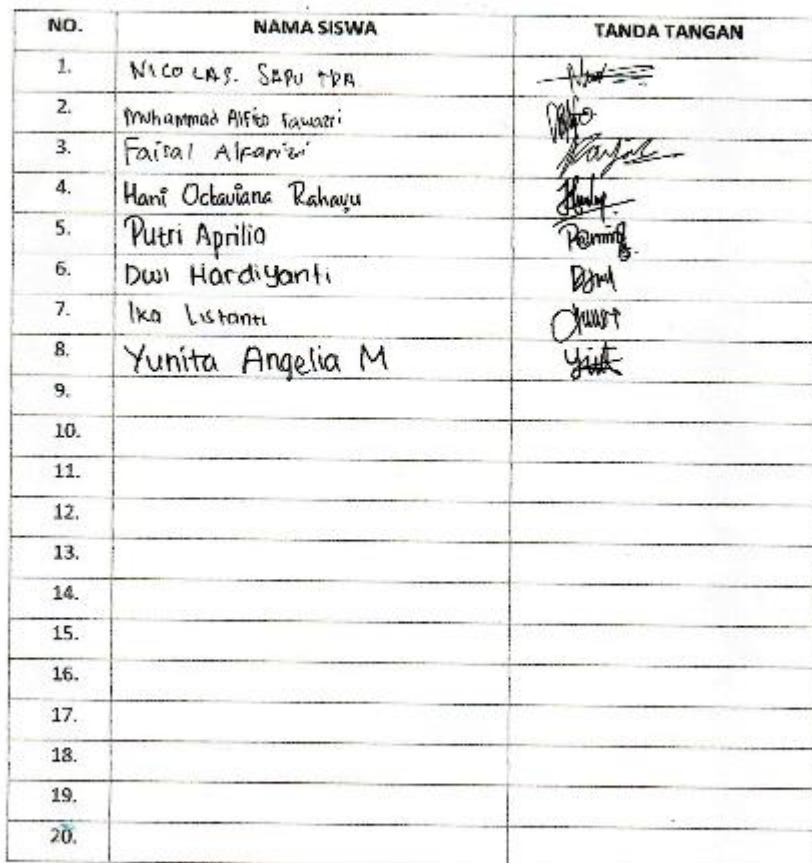 NO. NAMA SISWA TANDA TANGAN
1. NICOLAS. SAPUTRA
2. Muhammad Alfito Fawazri
3. Faisal Alfarizi
4. Hani Octaviana Rahayu
5. Putri Aprilia
6. Dwi Hardiyanti
7. Ika Listanti
8. Yunita Angelia M
9.
10.
11.
12.
13.
14.
15.
16.
17.
18.
19.
20.